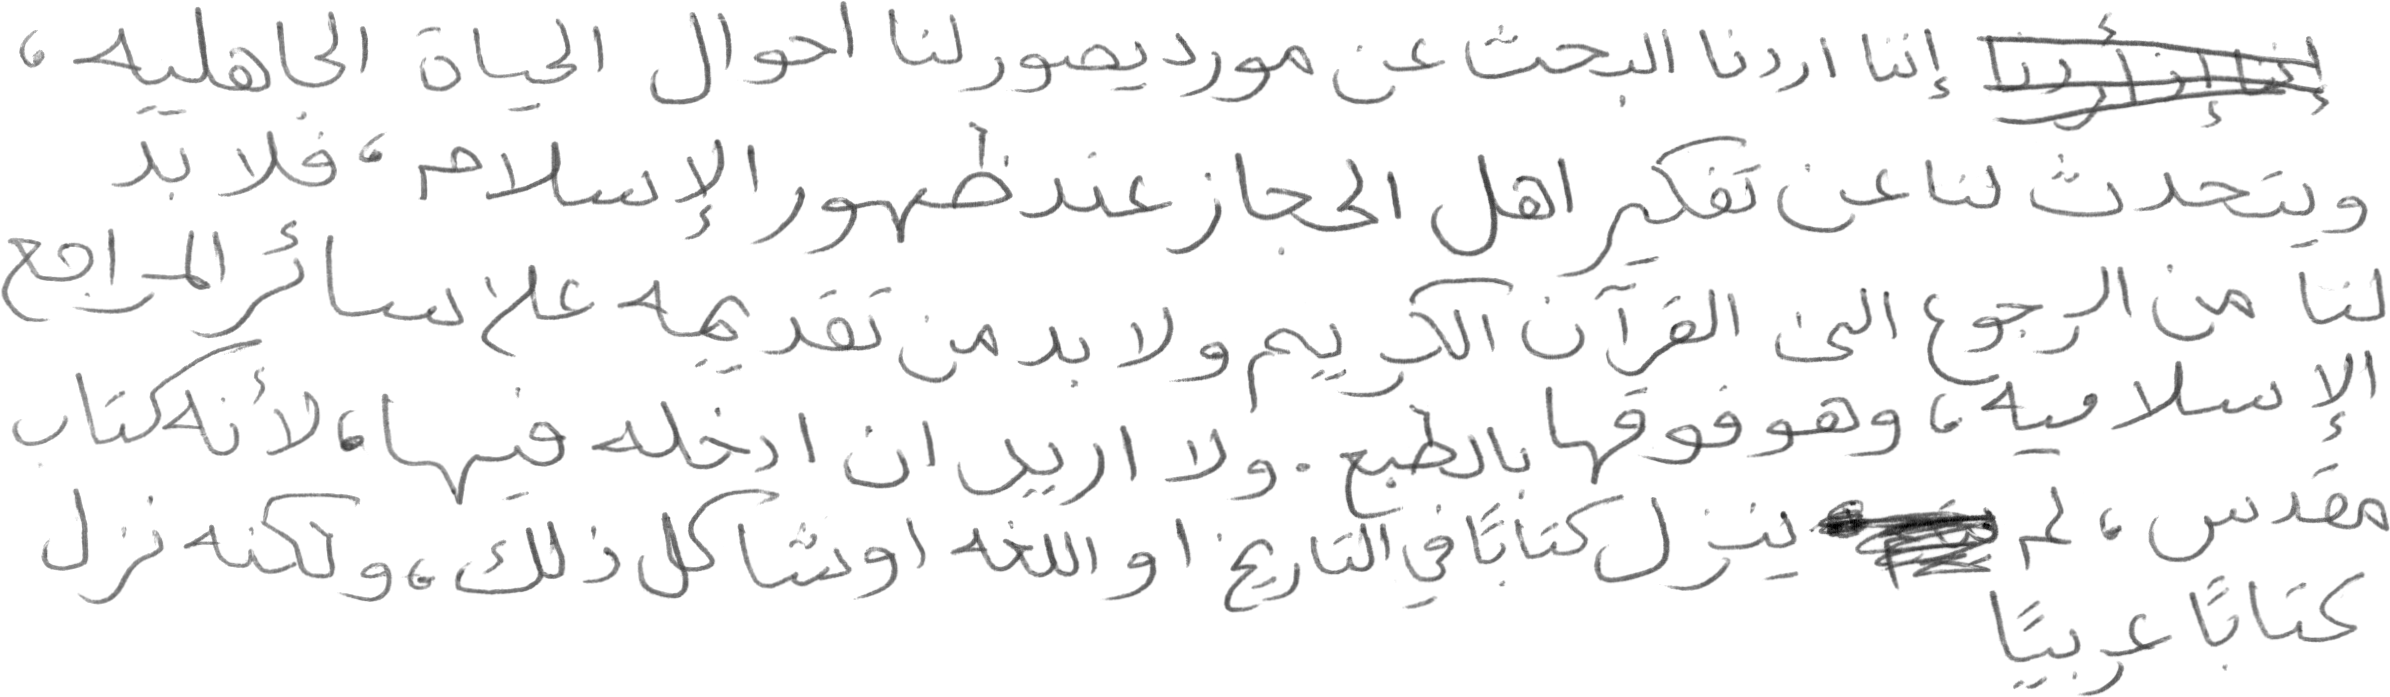 إننا اردنا البحث عن مورد يصور لنا احوال الحياة الجاهليه ،
ويتحدث لنا عن تفكير اهل الحجاز عند ظهور الإسلام ، فلا بد
لنا من الرجوع الى القرآن الكريم ولا بد من تقديمه على سائر المراجع
الإسلاميه ، وهو فوقها بالطبع . ولا اريد ان ادخله فيها ، لأنه كتاب
مقدس ، لم ينزل كتابًا في التاريخ او اللغه او شاكل ذلك ، ولكنه نزل
كتابًا عربيًا